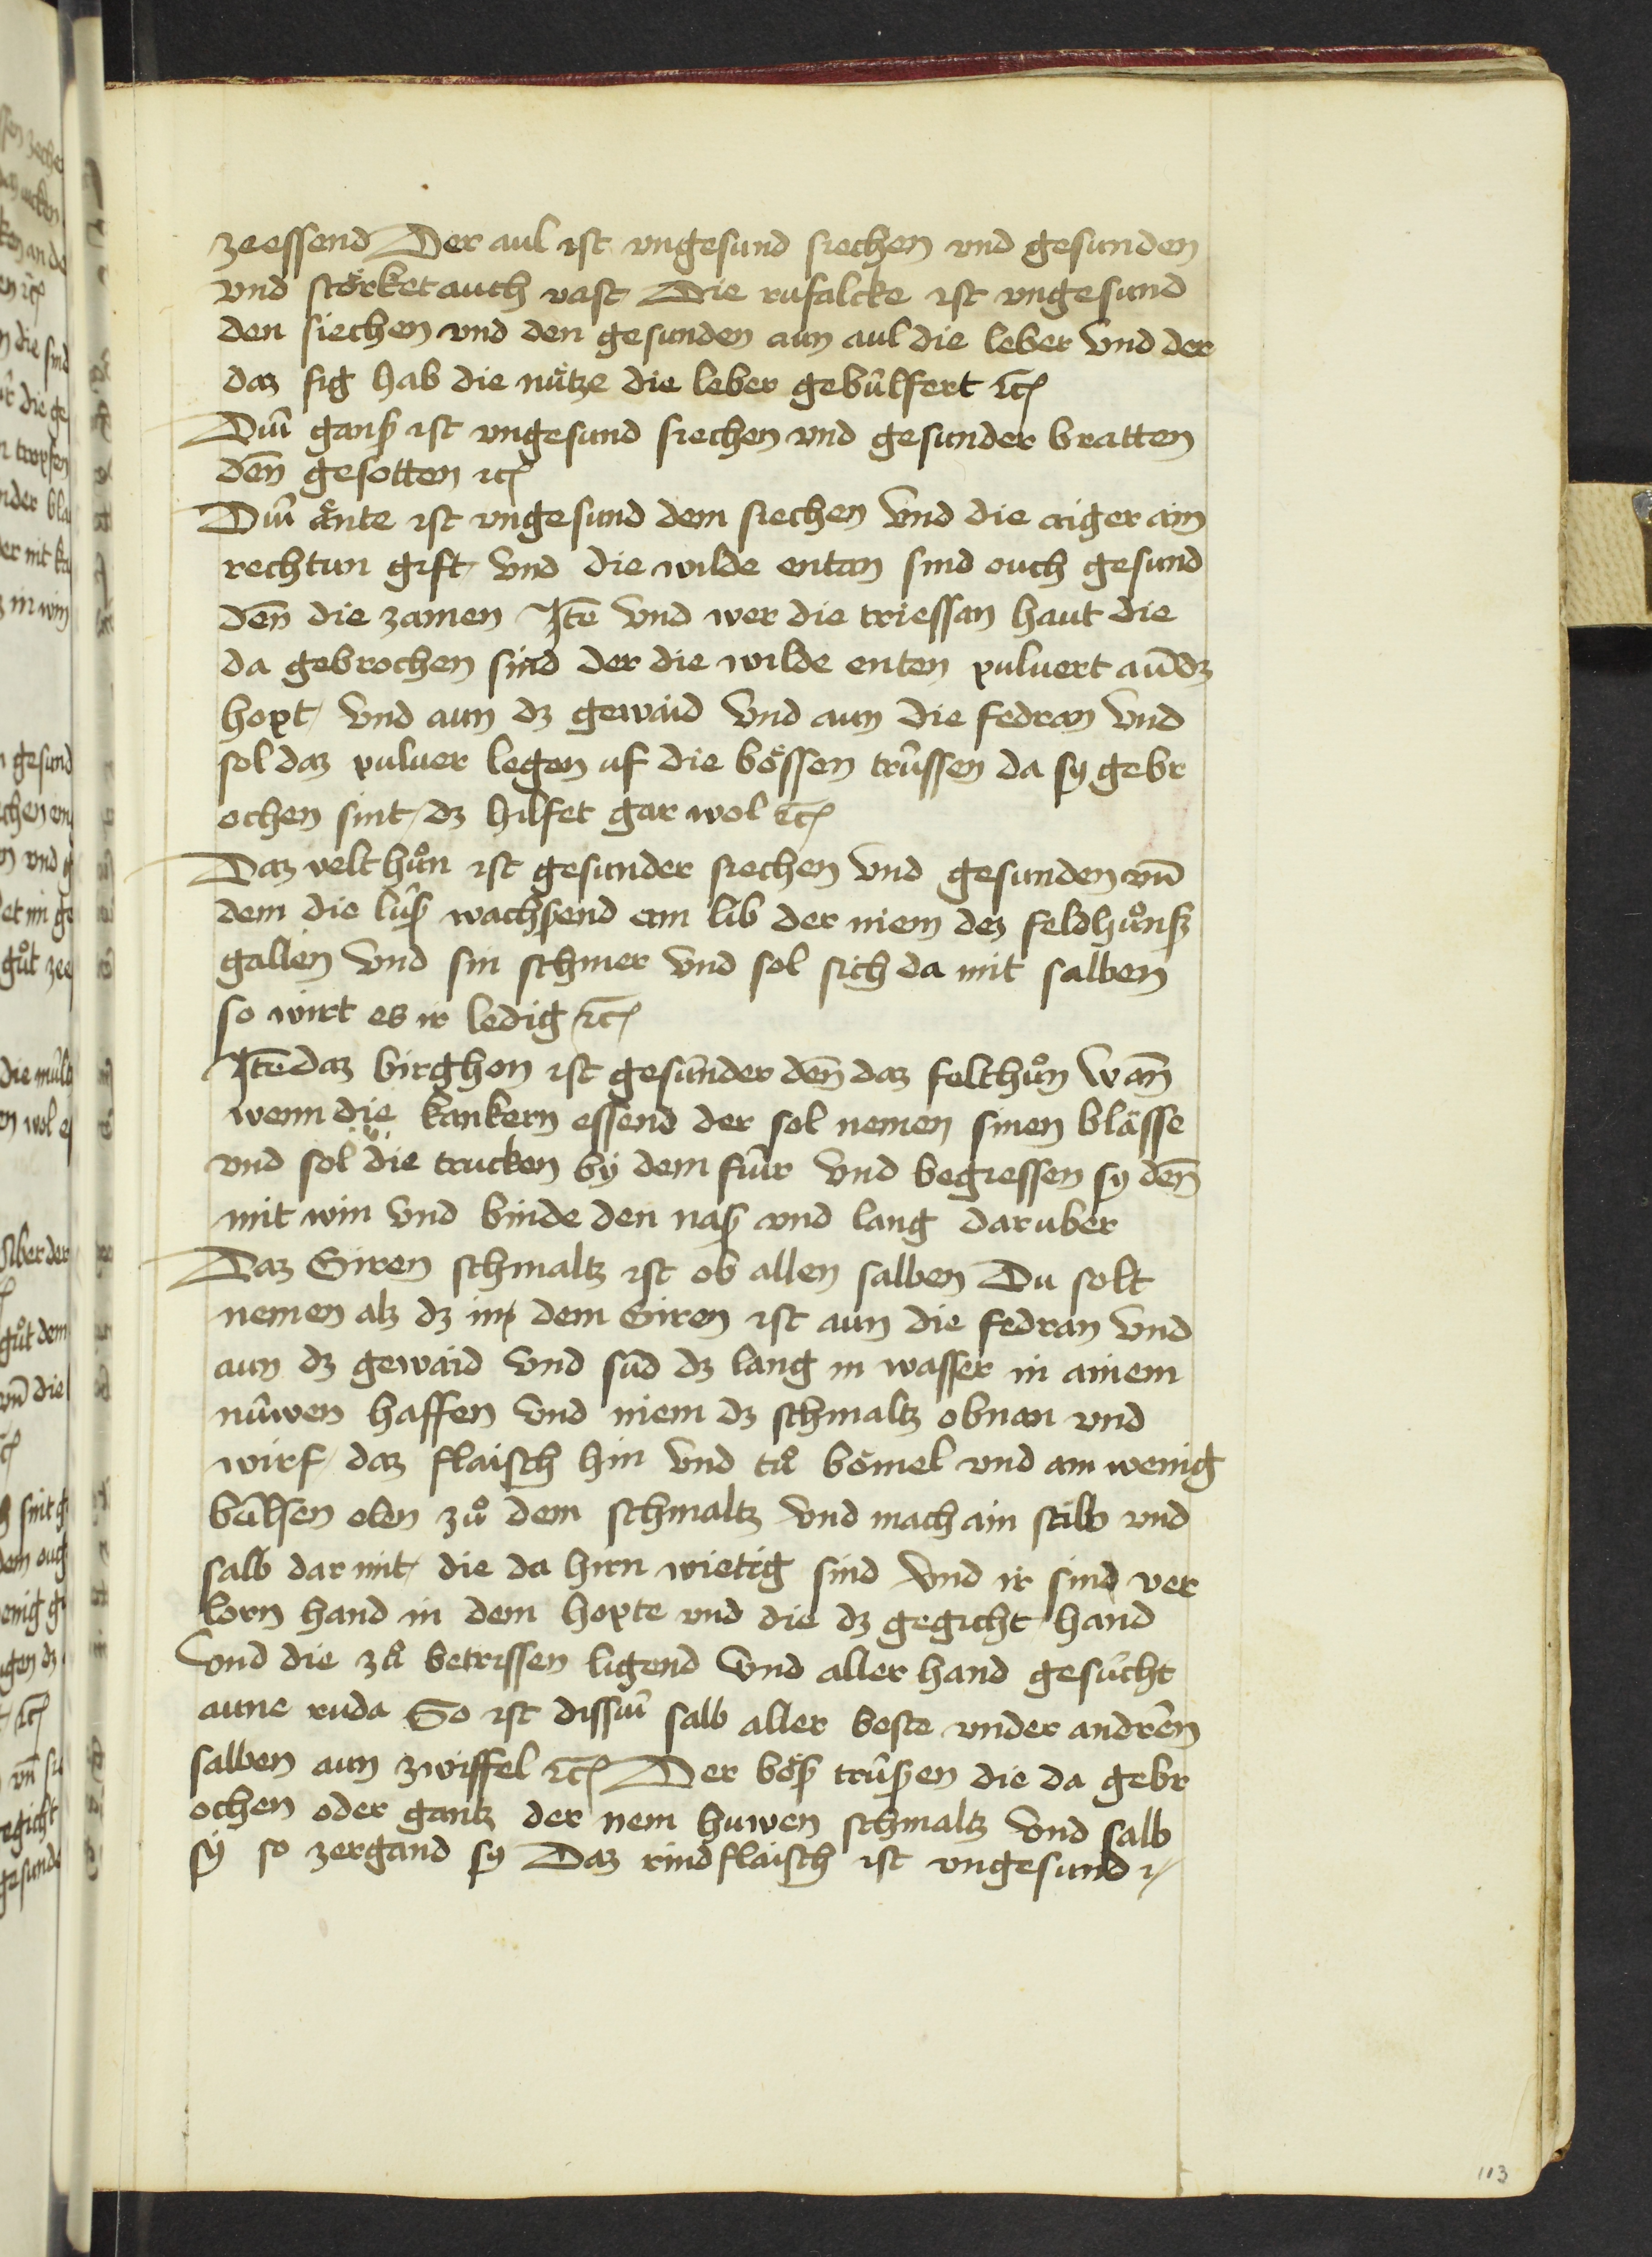 zeessend Der aul ist vngesund siechen vnd gesunden
vnd störket auch vast Die rufalcke ist vngesund
den siechen vnd den gesunden aun aul die leber vnd der
daz sig hab die nütze die leber gebulfert ꝛc
Diu̍ ganß ist vngesund siechen vnd gesunder bratten
den̄ gesotten ꝛc
Diu̍ änte ist vngesund dem siechen vnd die aiger ain
rechtun gift vnd die wilde enten sind ouch gesund
den̄ die zamen Itē vnd wer die triessan haut die
da gebrochen sind der die wilde enten puluert aun̄ dz
hopt vnd aun dz gewaid vnd aun die fedran vnd
sol daz puluer legen uf die bössen trüssen da sy gebr
ochen sint dz hilfet gar wol ꝛc
Daz velt hůn ist gesunder siechen vnd gesunden vn̄
dem die lüß wachssend am lib der niem dez feldhůnß
gallen vnd sin schmer vnd sol sich da mit salben
so wirt es ir ledig ꝛc
Itē daz birghon ist gesünder den̄ daz felthůn wan̄
wenn die kankern essend der sol nemen sinen blässe
vnd sol die trucken bÿ dem für vnd begiessen sy den̄
mit win vnd binde den naß vnd lang daruber
Daz Giren schmaltz ist ob allen salben Du solt
nemen alz dz in dem Giren ist aun die fedran vnd
aun dz gewaid vnd süd dz lang in wasser in ainem
nüwen haffen vnd niem dz schmaltz obnan vnd
wirf daz flaisch hin vnd tů bömel vnd ain wenig
bülsen olen zů dem schmaltz vnd mach ain salb vnd
salb dar mit die da hirn wietig sind vnd ir sind ver
lorn hand in dem hopte vnd die dz gegicht hand
vnd die zů betrissen ligend vnd aller hand gesücht
aune ruda So ist dissiu̍ salb aller beste vnder andren
salben aun zwiffel ꝛc Der böß trüßen die da gebr
ochen oder gantz der nem huwen schmaltz vnd salb
sÿ so zergand sy Daz rindflaisch ist vngesund ꝛc
113